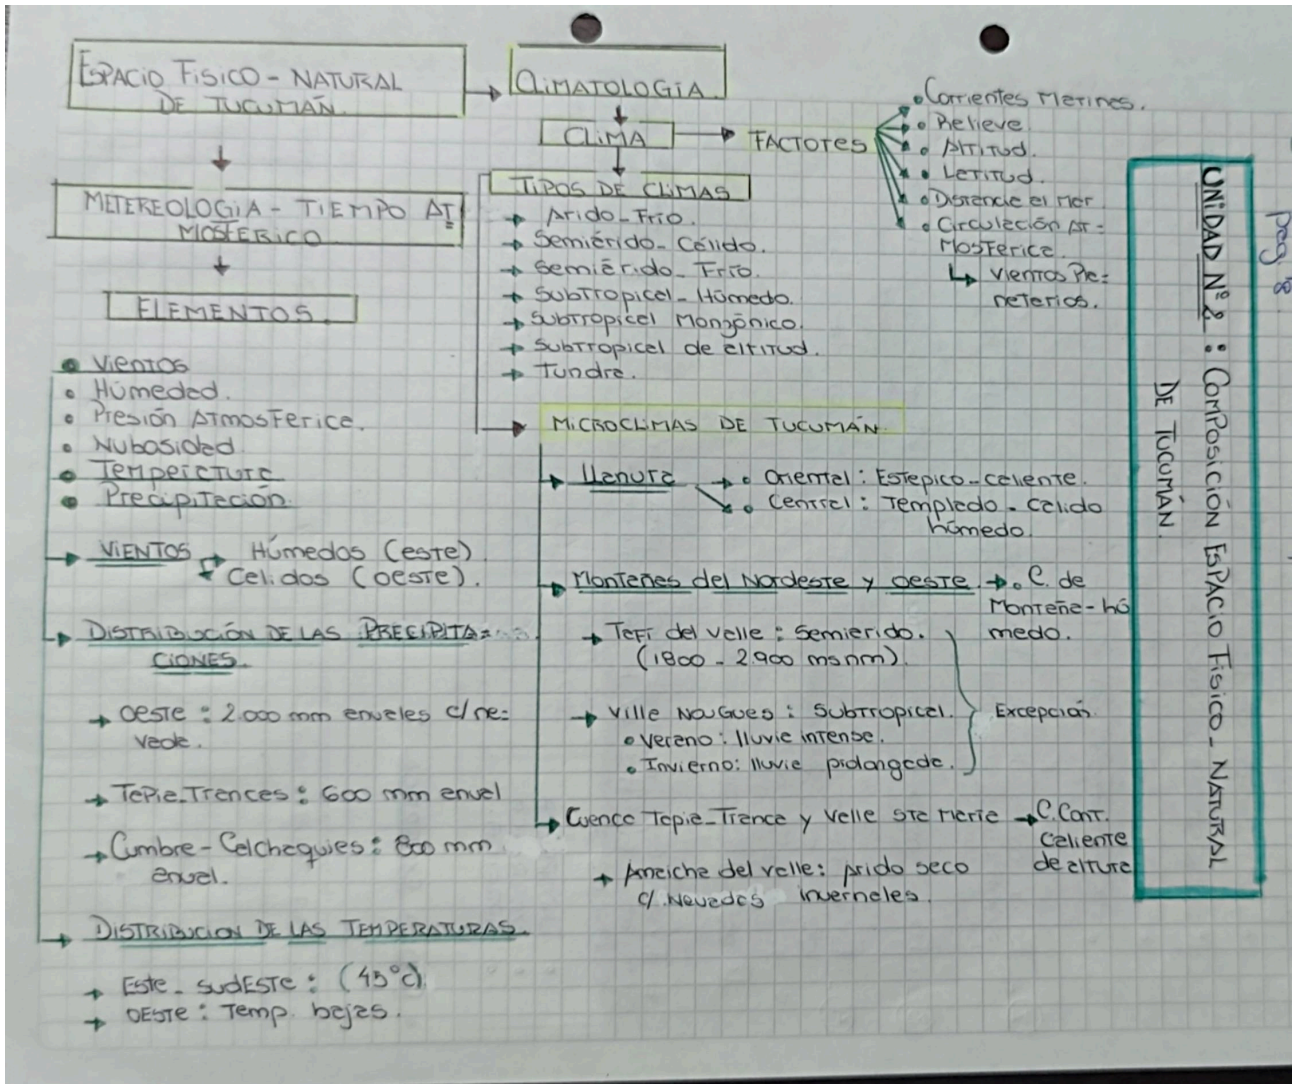 ESPACIO FISICO - NATURAL
DE TUCUMÁN.
METEREOLOGIA - TIEMPO AT
MOSFERICO
ELEMENTOS.
• Vientos
• Húmedad.
• Presión Atmosferica.
• Nubosidad
• Temperatura
• Precipitación.
VIENTOS → Húmedos (este)
Calidos (oeste).
DISTRIBUCIÓN DE LAS PRECIPITA=
CIONES.
→ Oeste : 2.000 mm anuales c/ ne=
vada.
→ Tapia-Trancas : 600 mm anual
→ Cumbre - Calchaquies : 800 mm
anual.
DISTRIBUCION DE LAS TEMPERATURAS.
→ Este - sudEste : (45°c)
→ OEste : Temp. bajas.
CLIMATOLOGIA
CLIMA → FACTORES
• Corrientes Marinas.
• Relieve
• Altitud.
• Latitud.
• Distancia al mar
• Circulación At=
mosferica
↳ vientos Pla=
netarios.
TIPOS DE CLIMAS
→ Arido-Frío.
→ Semiárido-Cálido.
→ Semiárido-Frío.
→ Subtropical-Húmedo.
→ Subtropical Monzónico.
→ Subtropical de altitud.
→ Tundra.
MICROCLIMAS DE TUCUMÁN.
→ Llanura → • Oriental : Estepico-caliente.
• Central : Templado - calido
húmedo.
→ Montañas del Nordeste y oeste → • C. de
Montaña-hú
medo.
→ Tafí del valle : Semiarido.
(1800 - 2.900 msnm).
→ Villa Nougues : Subtropical.
• Verano : lluvia intensa.
• Invierno : lluvia prolongada.
Excepción.
→ Cuenca Tapia-Tranca y Valle Sta Maria → C. Cont.
Caliente
de altura
→ Amaicha del valle : Arido seco
c/ Nevadas invernales.
UNIDAD Nº 2 : COMPOSICIÓN ESPACIO FISICO - NATURAL
DE TUCUMÁN.